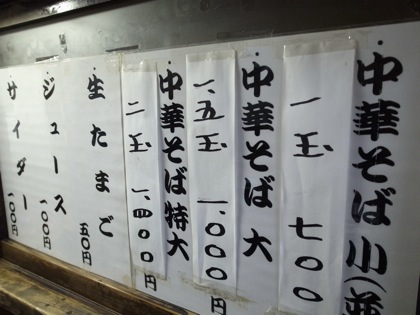 中華そば小(並
一玉 七〇〇
中華そば 大
一、五玉 一、〇〇〇円
中華そば特大
二玉 一、四〇〇円
生たまご 五〇円
ジュース 一〇〇円
サイダー 一〇〇円